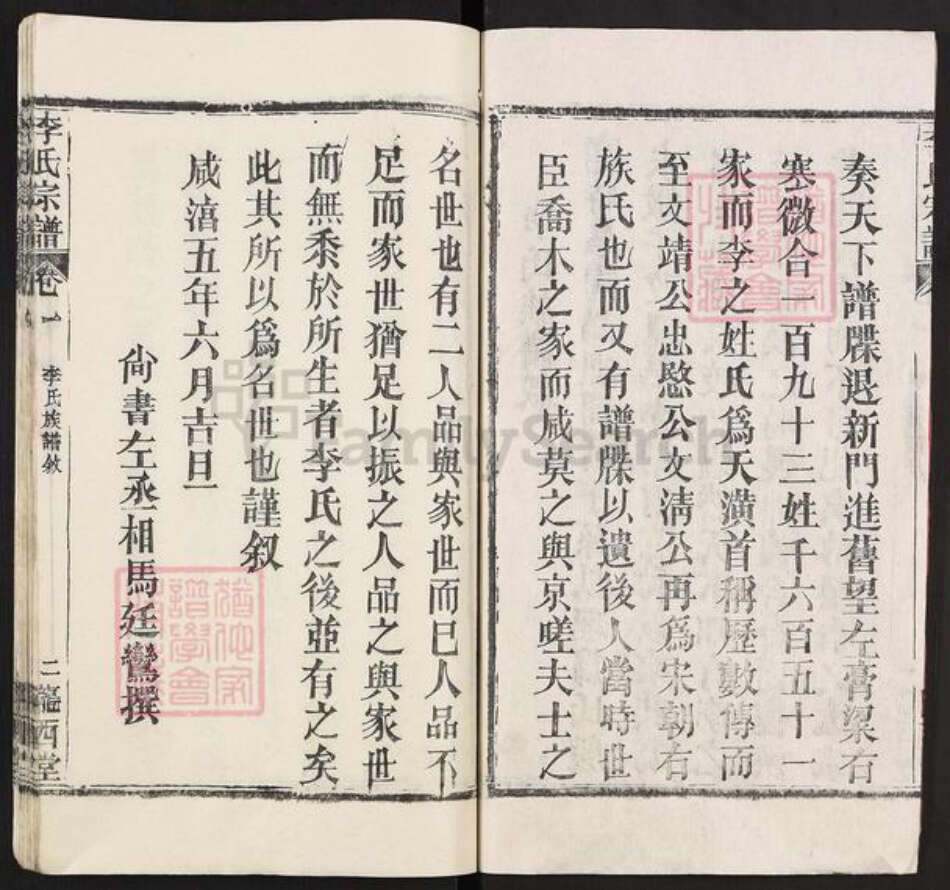 奏天下譜牒退新門進舊望左膏梁右
寒微合一百九十三姓千六百五十一
家而李之姓氏爲天潢首稱歷數傳而
至文靖公忠愍公文清公再爲宋朝右
族氏也而又有譜牒以遺後人當時世
臣喬木之家而咸莫之與京嗟夫士之
名世也有二人品與家世而已人品不
足而家世猶足以振之人品之與家世
而無忝於所生者李氏之後並有之矣
此其所以爲名世也謹叙
咸淳五年六月吉旦
尚書左丞相馬廷鸞撰
李氏宗譜
卷一
李氏族譜敘
二
隴西堂
FamilySearch